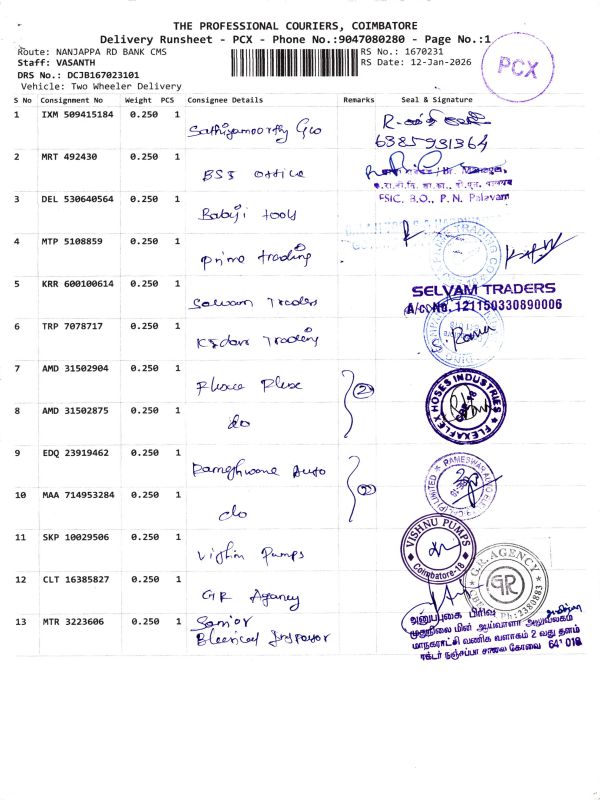 THE PROFESSIONAL COURIERS, COIMBATORE
Delivery Runsheet - PCX - Phone No.:9047080280 - Page No.:1
Route: NANJAPPA RD BANK CMS
RS No.: 1670231
Staff: VASANTH
RS Date: 12-Jan-2026
DRS No.: DCJB167023101
Vehicle: Two Wheeler Delivery
PCX
S No Consignment No Weight PCS Consignee Details Remarks Seal & Signature
1 IXM 509415184 0.250 1 Sathiyamoorthy
6385931364
2 MRT 492430 0.250 1 office
Manager
ESIC, B.O., P. N. Palayam
3 DEL 530640564 0.250 1 Babuji tools
4 MTP 5108859 0.250 1 primo trading
5 KRR 600100614 0.250 1 Selvam Traders
SELVAM TRADERS
A/c No. 121150330890006
6 TRP 7078717 0.250 1 Trading
7 AMD 31502904 0.250 1
2
FLEXAFLEX HOSES INDUSTRIES
8 AMD 31502875 0.250 1 do
9 EDQ 23919462 0.250 1 Auto
2
10 MAA 714953284 0.250 1 do
11 SKP 10029506 0.250 1 Pumps
VISHNU PUMPS
Coimbatore-18
12 CLT 16385827 0.250 1 GR Agency
G.R. AGENCY
GR
Ph: 2380883
13 MTR 3223606 0.250 1 Senior
அனுப்புகை பிரிவு
முதுநிலை மின் ஆய்வாளர் அலுவலகம்
மாநகராட்சி வணிக வளாகம் 2 வது தளம்
நஞ்சப்பா சாலை கோவை 641 018